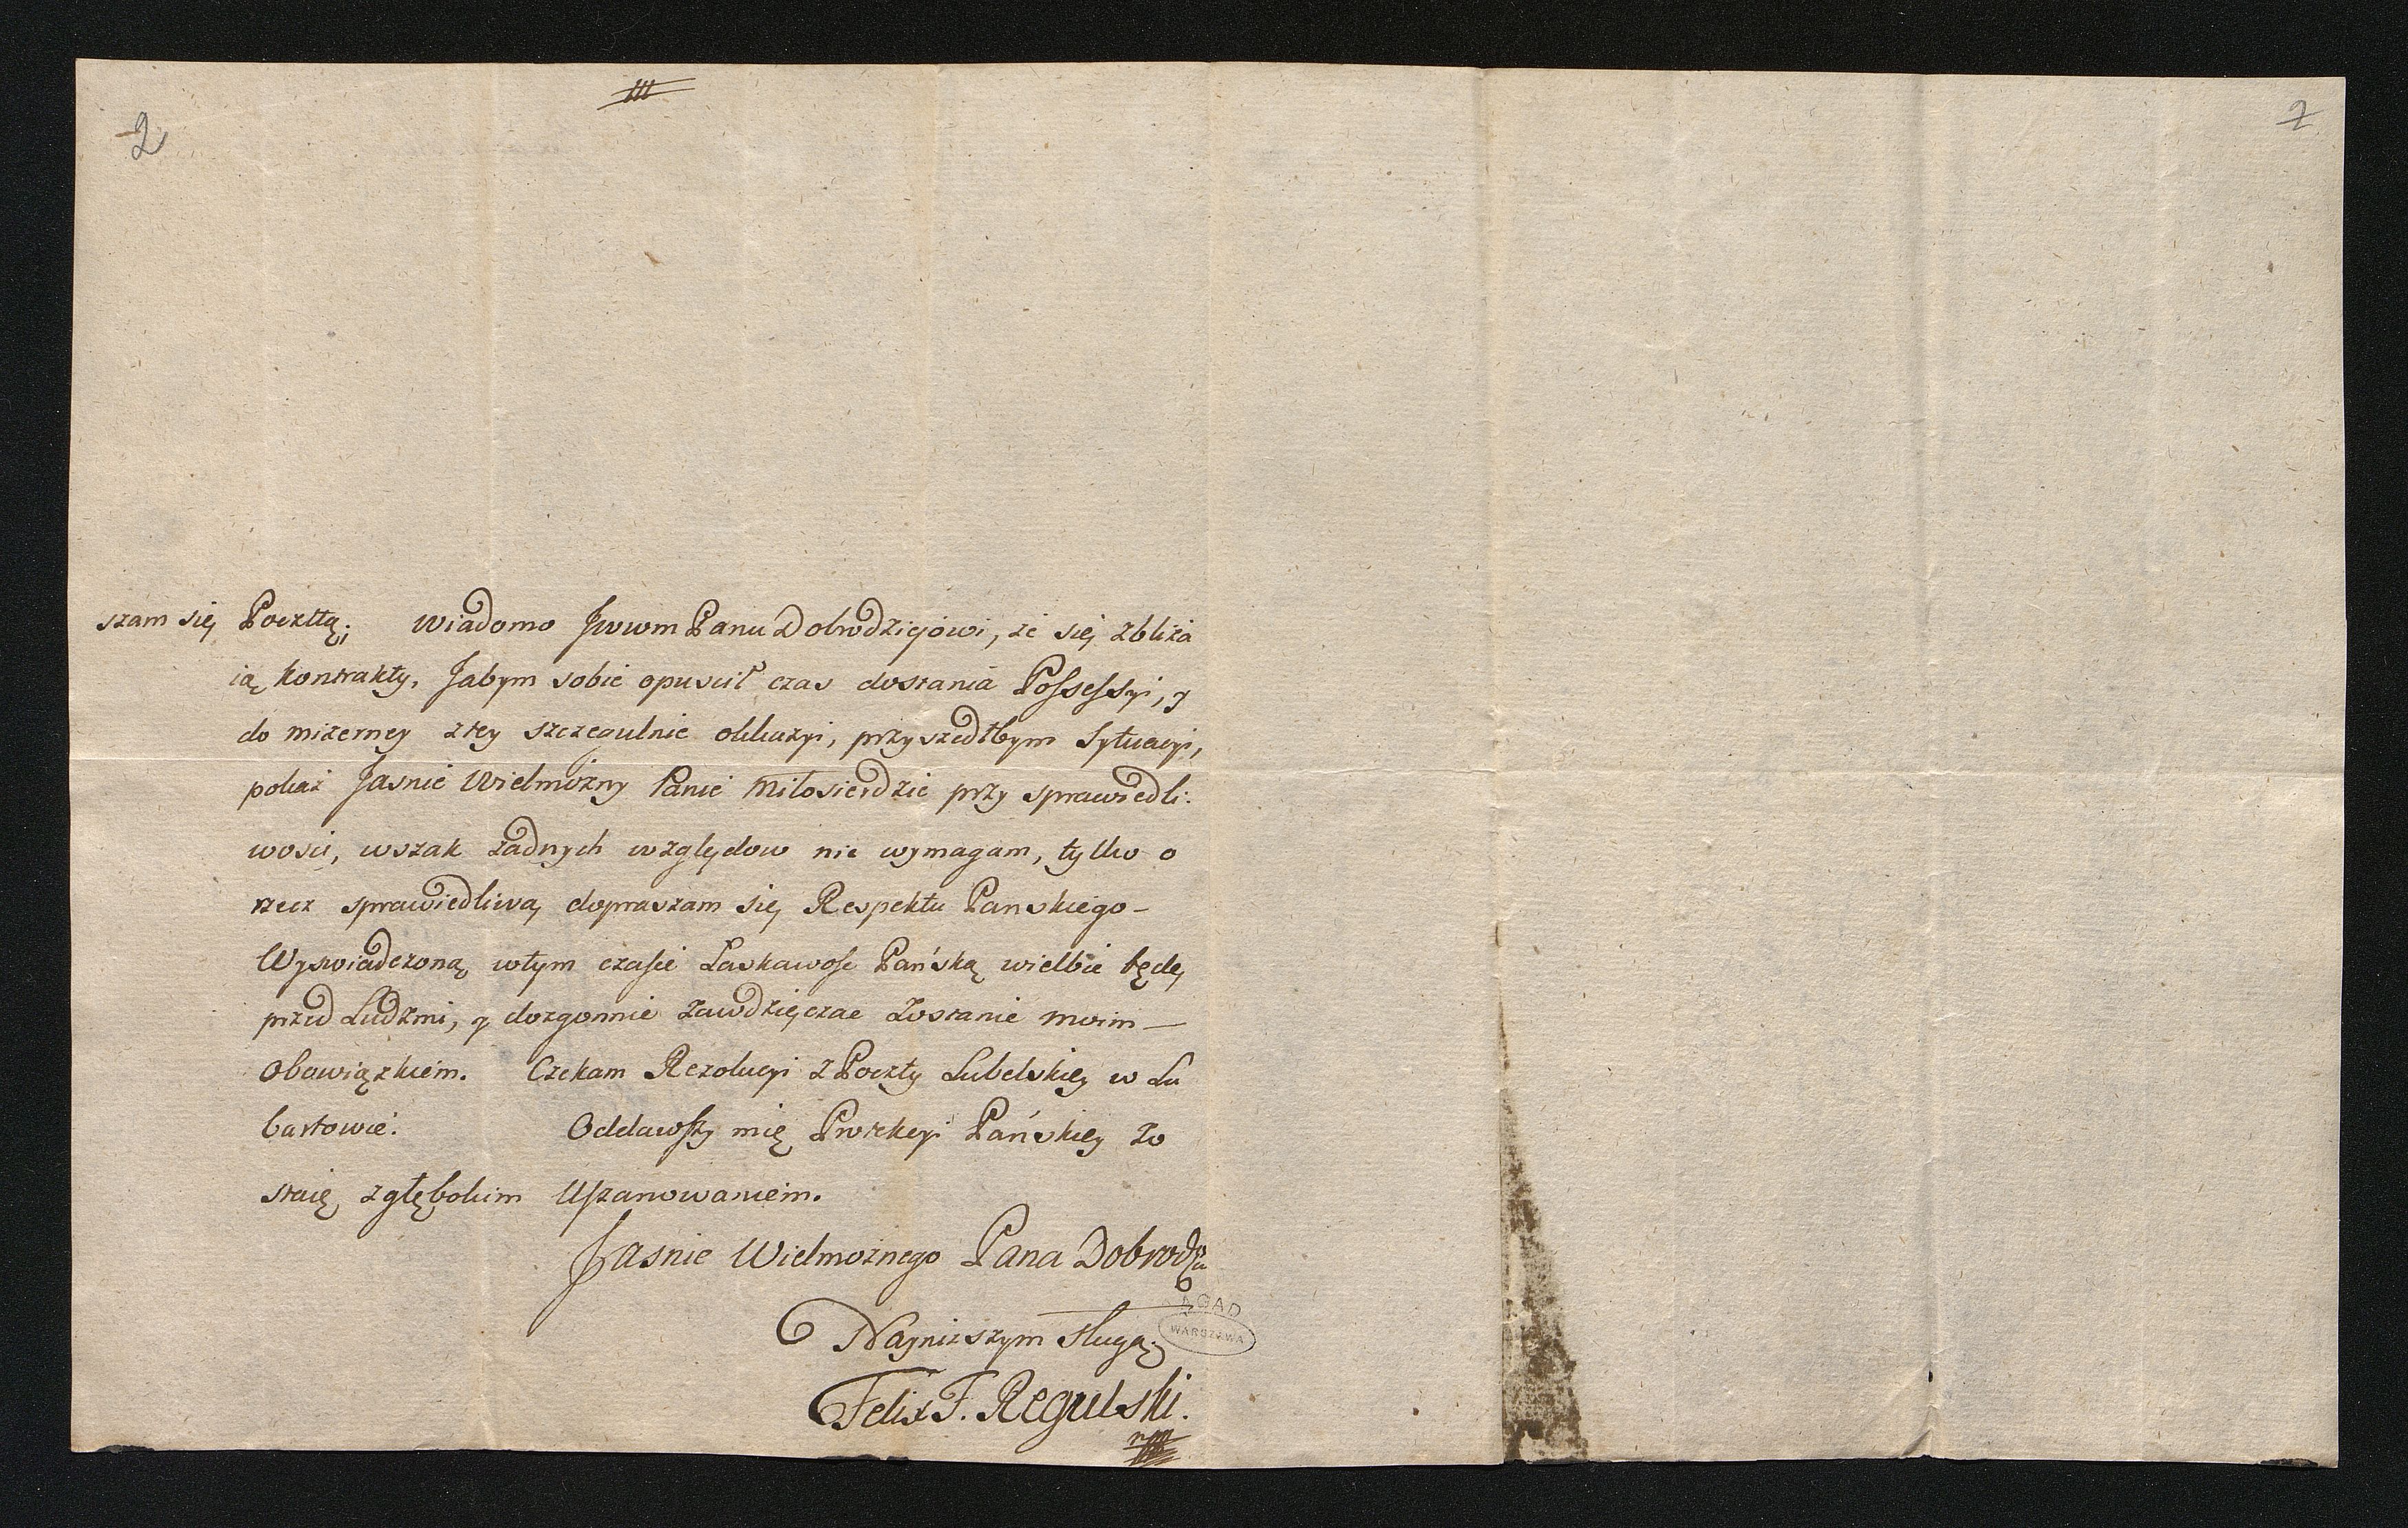 2
2
szam się Pocztą; Wiadomo Jwwm Panu Dobrodziejowi, że się zbliża
ią kontrakty, Jabym sobie opuscił czas dostania Possessyi, y
do mizerney z tey szczegulnie okkazyi, przyszedłbym Sytuacyi,
pokaż Jasnie Wielmożny Panie Miłosierdzie przy sprawiedli:
wosci, wszak żadnych względow nie wymagam, tylko o
rzecz sprawiedliwą dopraszam się Respektu Panskiego –
Wyswiadczoną wtym czasie Laskawosc Pańską wielbic będę
przed Ludzmi, y dozgonnie zawdzięczac zostanie moim –
Obowiązkiem. Czekam Rezolucyi z Poczty Lubelskiey w Lu
bartowie. Oddawszy mię Protekcyi Pańskiey zo
staię zgłębokim Uszanowaniem.
Jasnie Wielmożnego Pana Dobrodza
Nayniższym Sługą
AGAD
WARSZAWA
Felix F. Regulski.